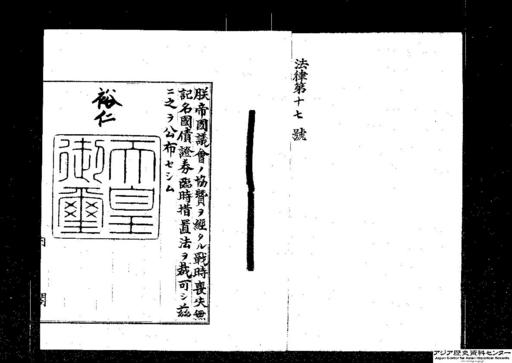 法律第十七號
朕帝國議會ノ協贊ヲ經タル戰時喪失無
記名國債證券臨時措置法ヲ裁可シ茲
ニ之ヲ公布セシム
裕仁
天皇
御璽
内閣
アジア歴史資料センター
Japan Center for Asian Historical Records